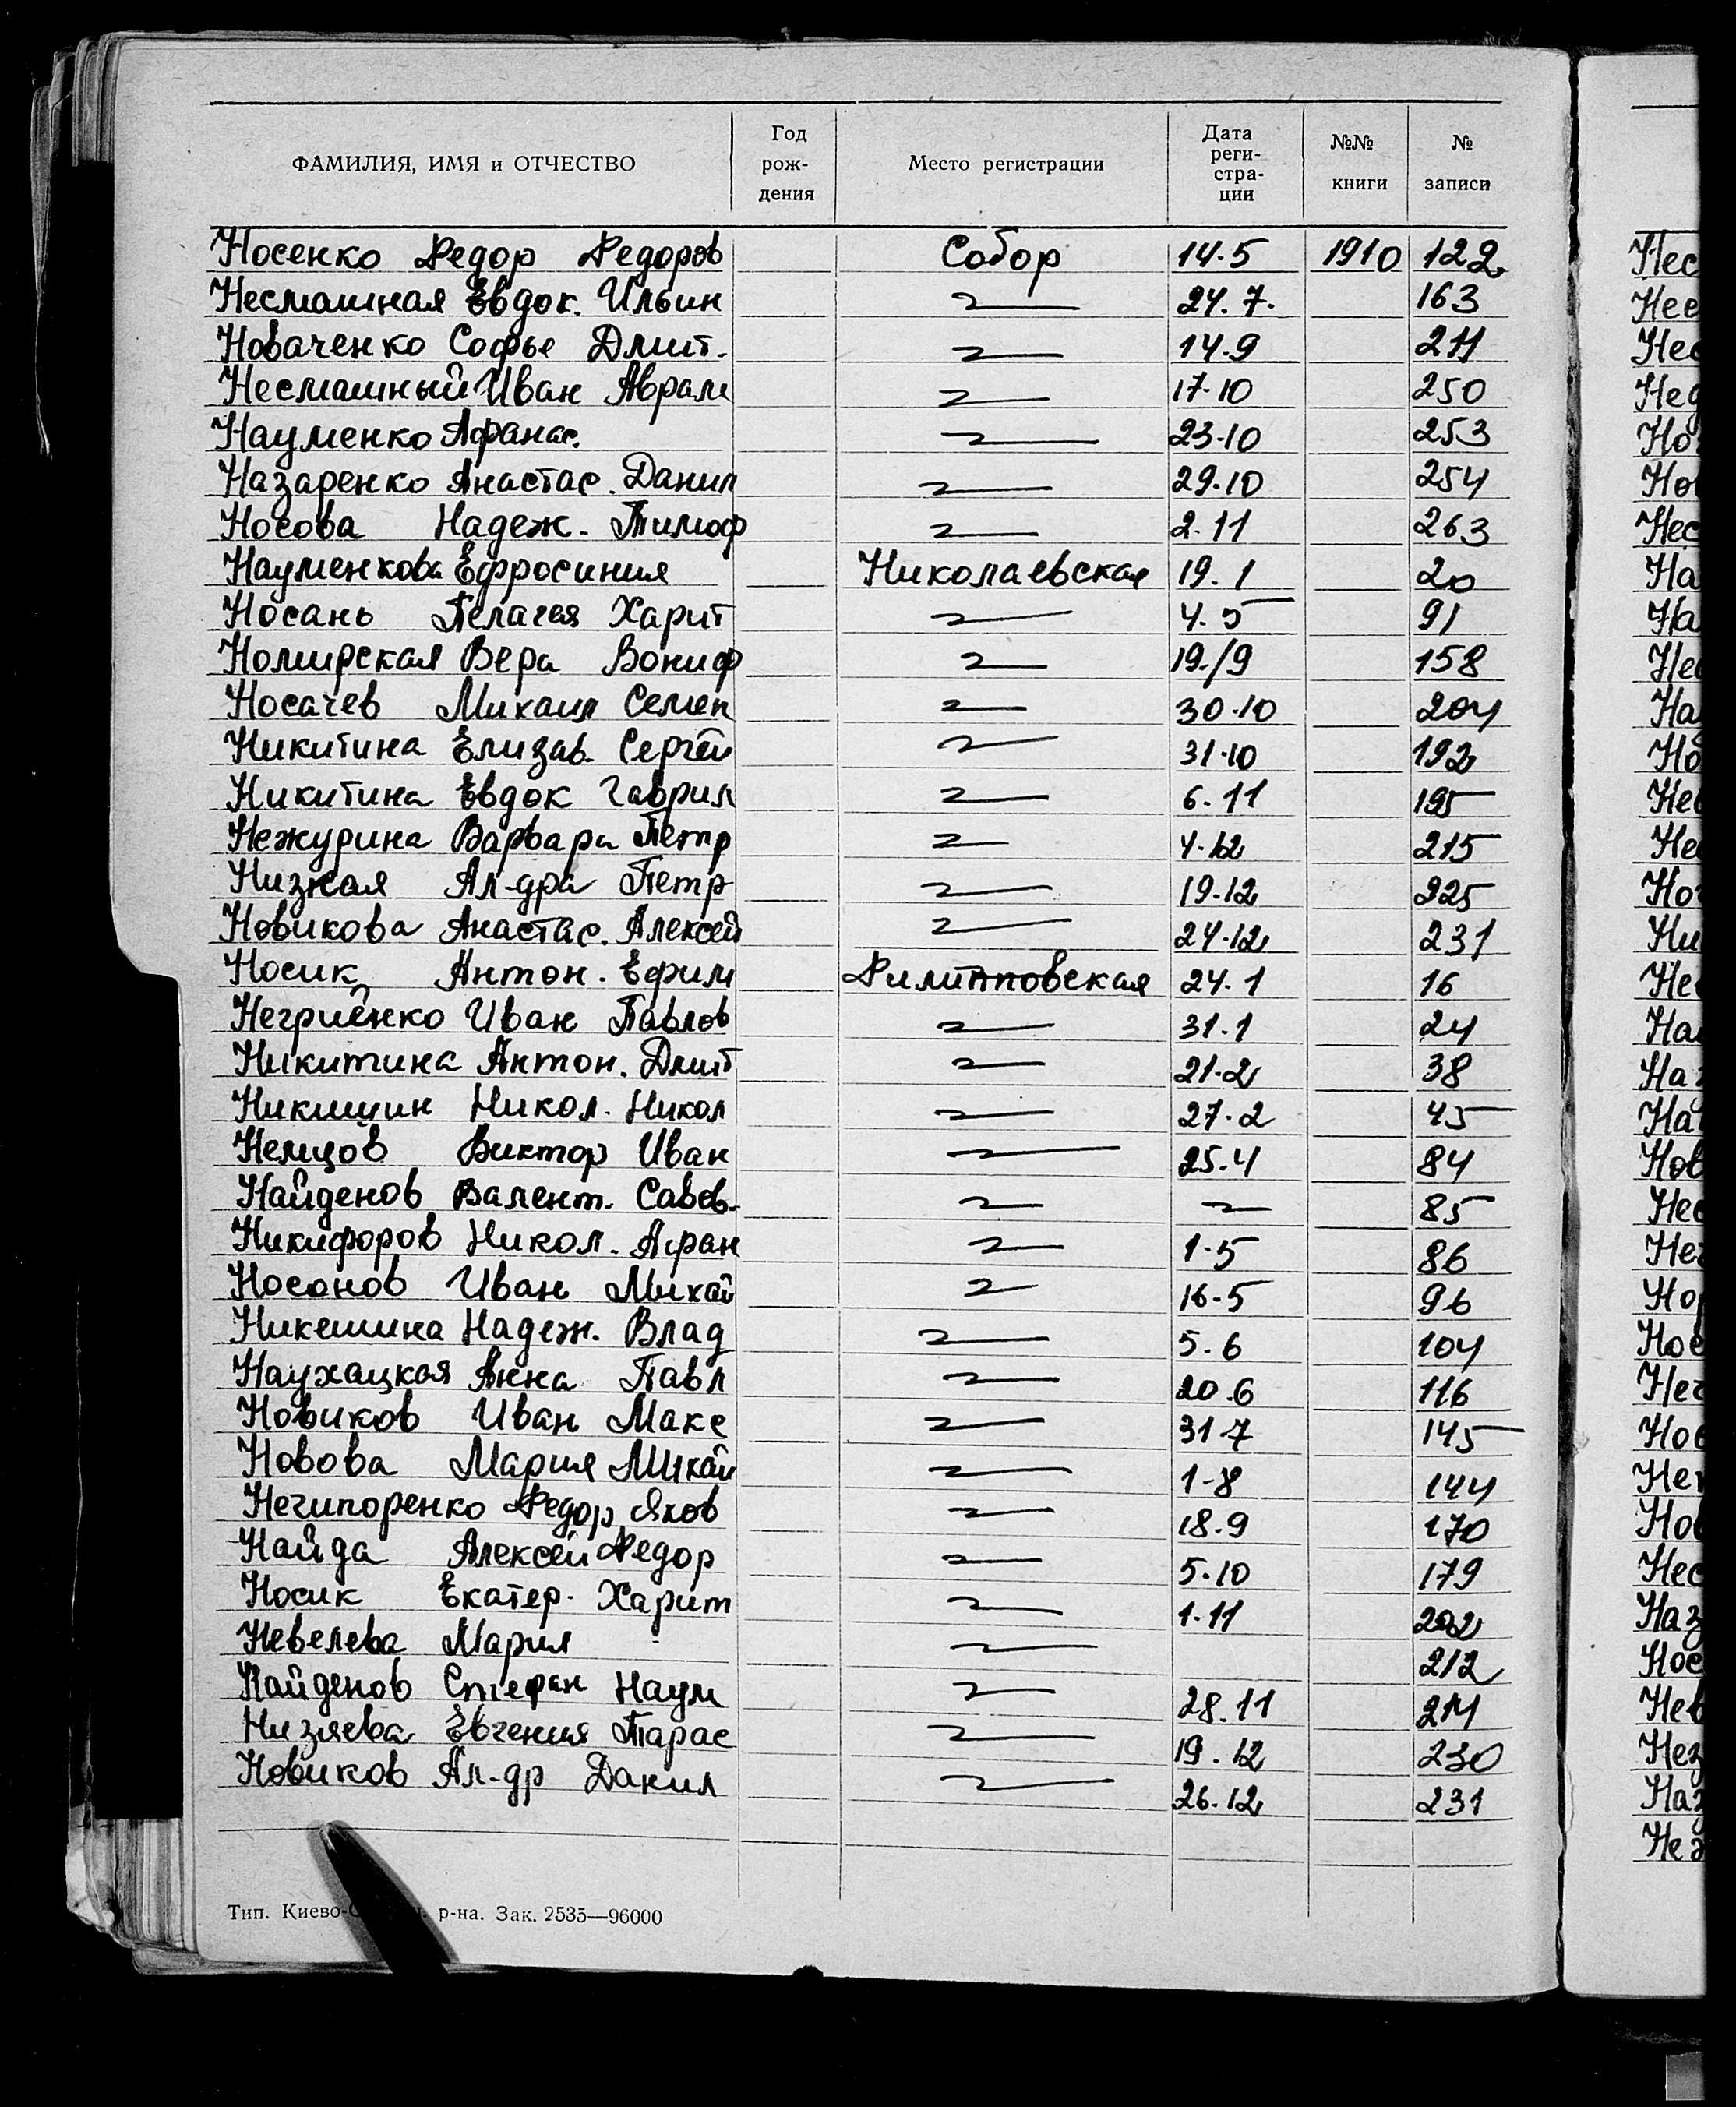 ФАМИЛИЯ, ИМЯ и ОТЧЕСТВО | Год рож-дения | Место регистрации | Дата реги-стра-ции | №№ книги | № записи
Носенко Федор Федоров Собор 14.5 1910 122
Несмашная Евдок. Ильин 24.7. 163
Новаченко Софье Дмит. 14.9 211
Несмашный Иван Аврам 17-10 250
Науменко Афанас. 23-10 253
Назаренко Анастас. Данил 29.10 254
Носова Надеж. Тимоф 2.11 263
Науменкова Ефросиния Николаевская 19.1 20
Носань Пелагея Харит 4.5 91
Номирская Вера Вониф 19/9 158
Носачев Михаил Семен 30.10 204
Никитина Елизав. Сергей 31.10 192
Никитина Евдок Гаврил 6.11 195
Нежурина Варвара Петр 4.12 215
Низкая Ал-дра Петр 19.12 225
Новикова Анастас. Алексей 24.12 231
Носик Антон. Ефим Филипповская 24.1 16
Негриенко Иван Павлов 31.1 24
Никитина Антон. Дмит 21.2 38
Никишин Никол. Никол 27.2 45
Немцов Виктор Иван 25.4 84
Найденов Валент. Савов. 85
Никифоров Никол. Афан 1.5 86
Носонов Иван Михай 16.5 96
Никешина Надеж. Влад 5.6 104
Наухацкая Анна Павл 20.6 116
Новиков Иван Макс 31.7 145
Новова Мария Михай 1-8 144
Нечипоренко Федор Яков 18.9 170
Найда Алексей Федор 5.10 179
Носик Екатер. Харит 1.11 202
Невелева Мария 212
Найденов Стефан Наум 28.11 214
Низяева Евгения Тарас 19.12 230
Новиков Ал-др Данил 26.12 231
Тип. Киево- р-на. Зак. 2535—96000